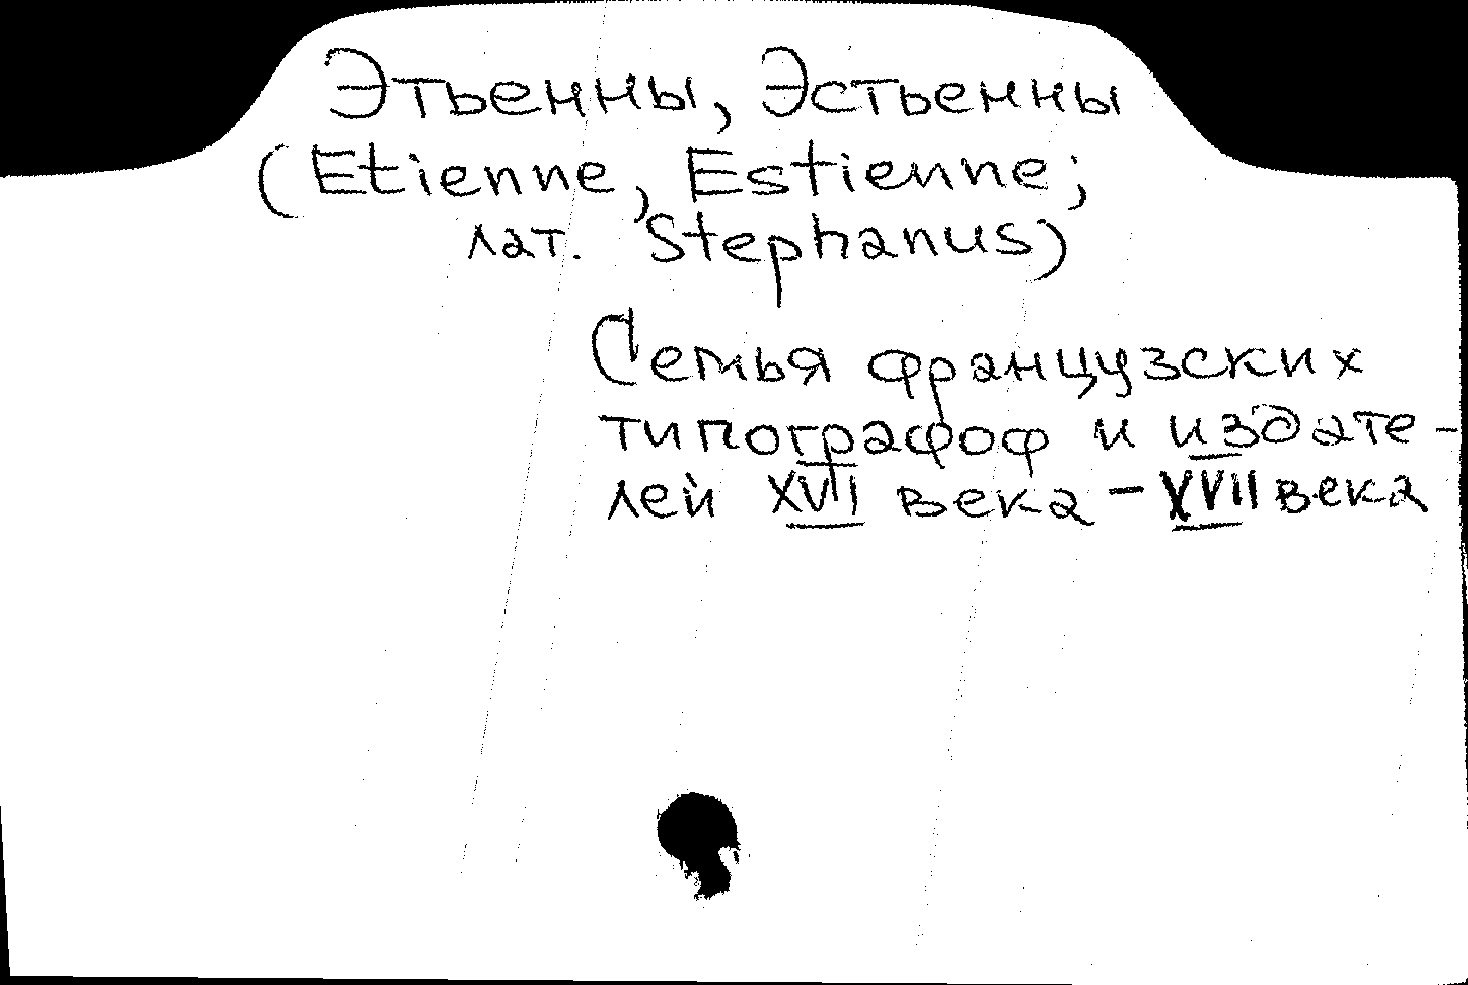 Этьенны, Эстьенны
(Etienne, Estienne;
лат. Stephanus)
Семья французских
типографоф и издате-
лей XVI века - XVII века